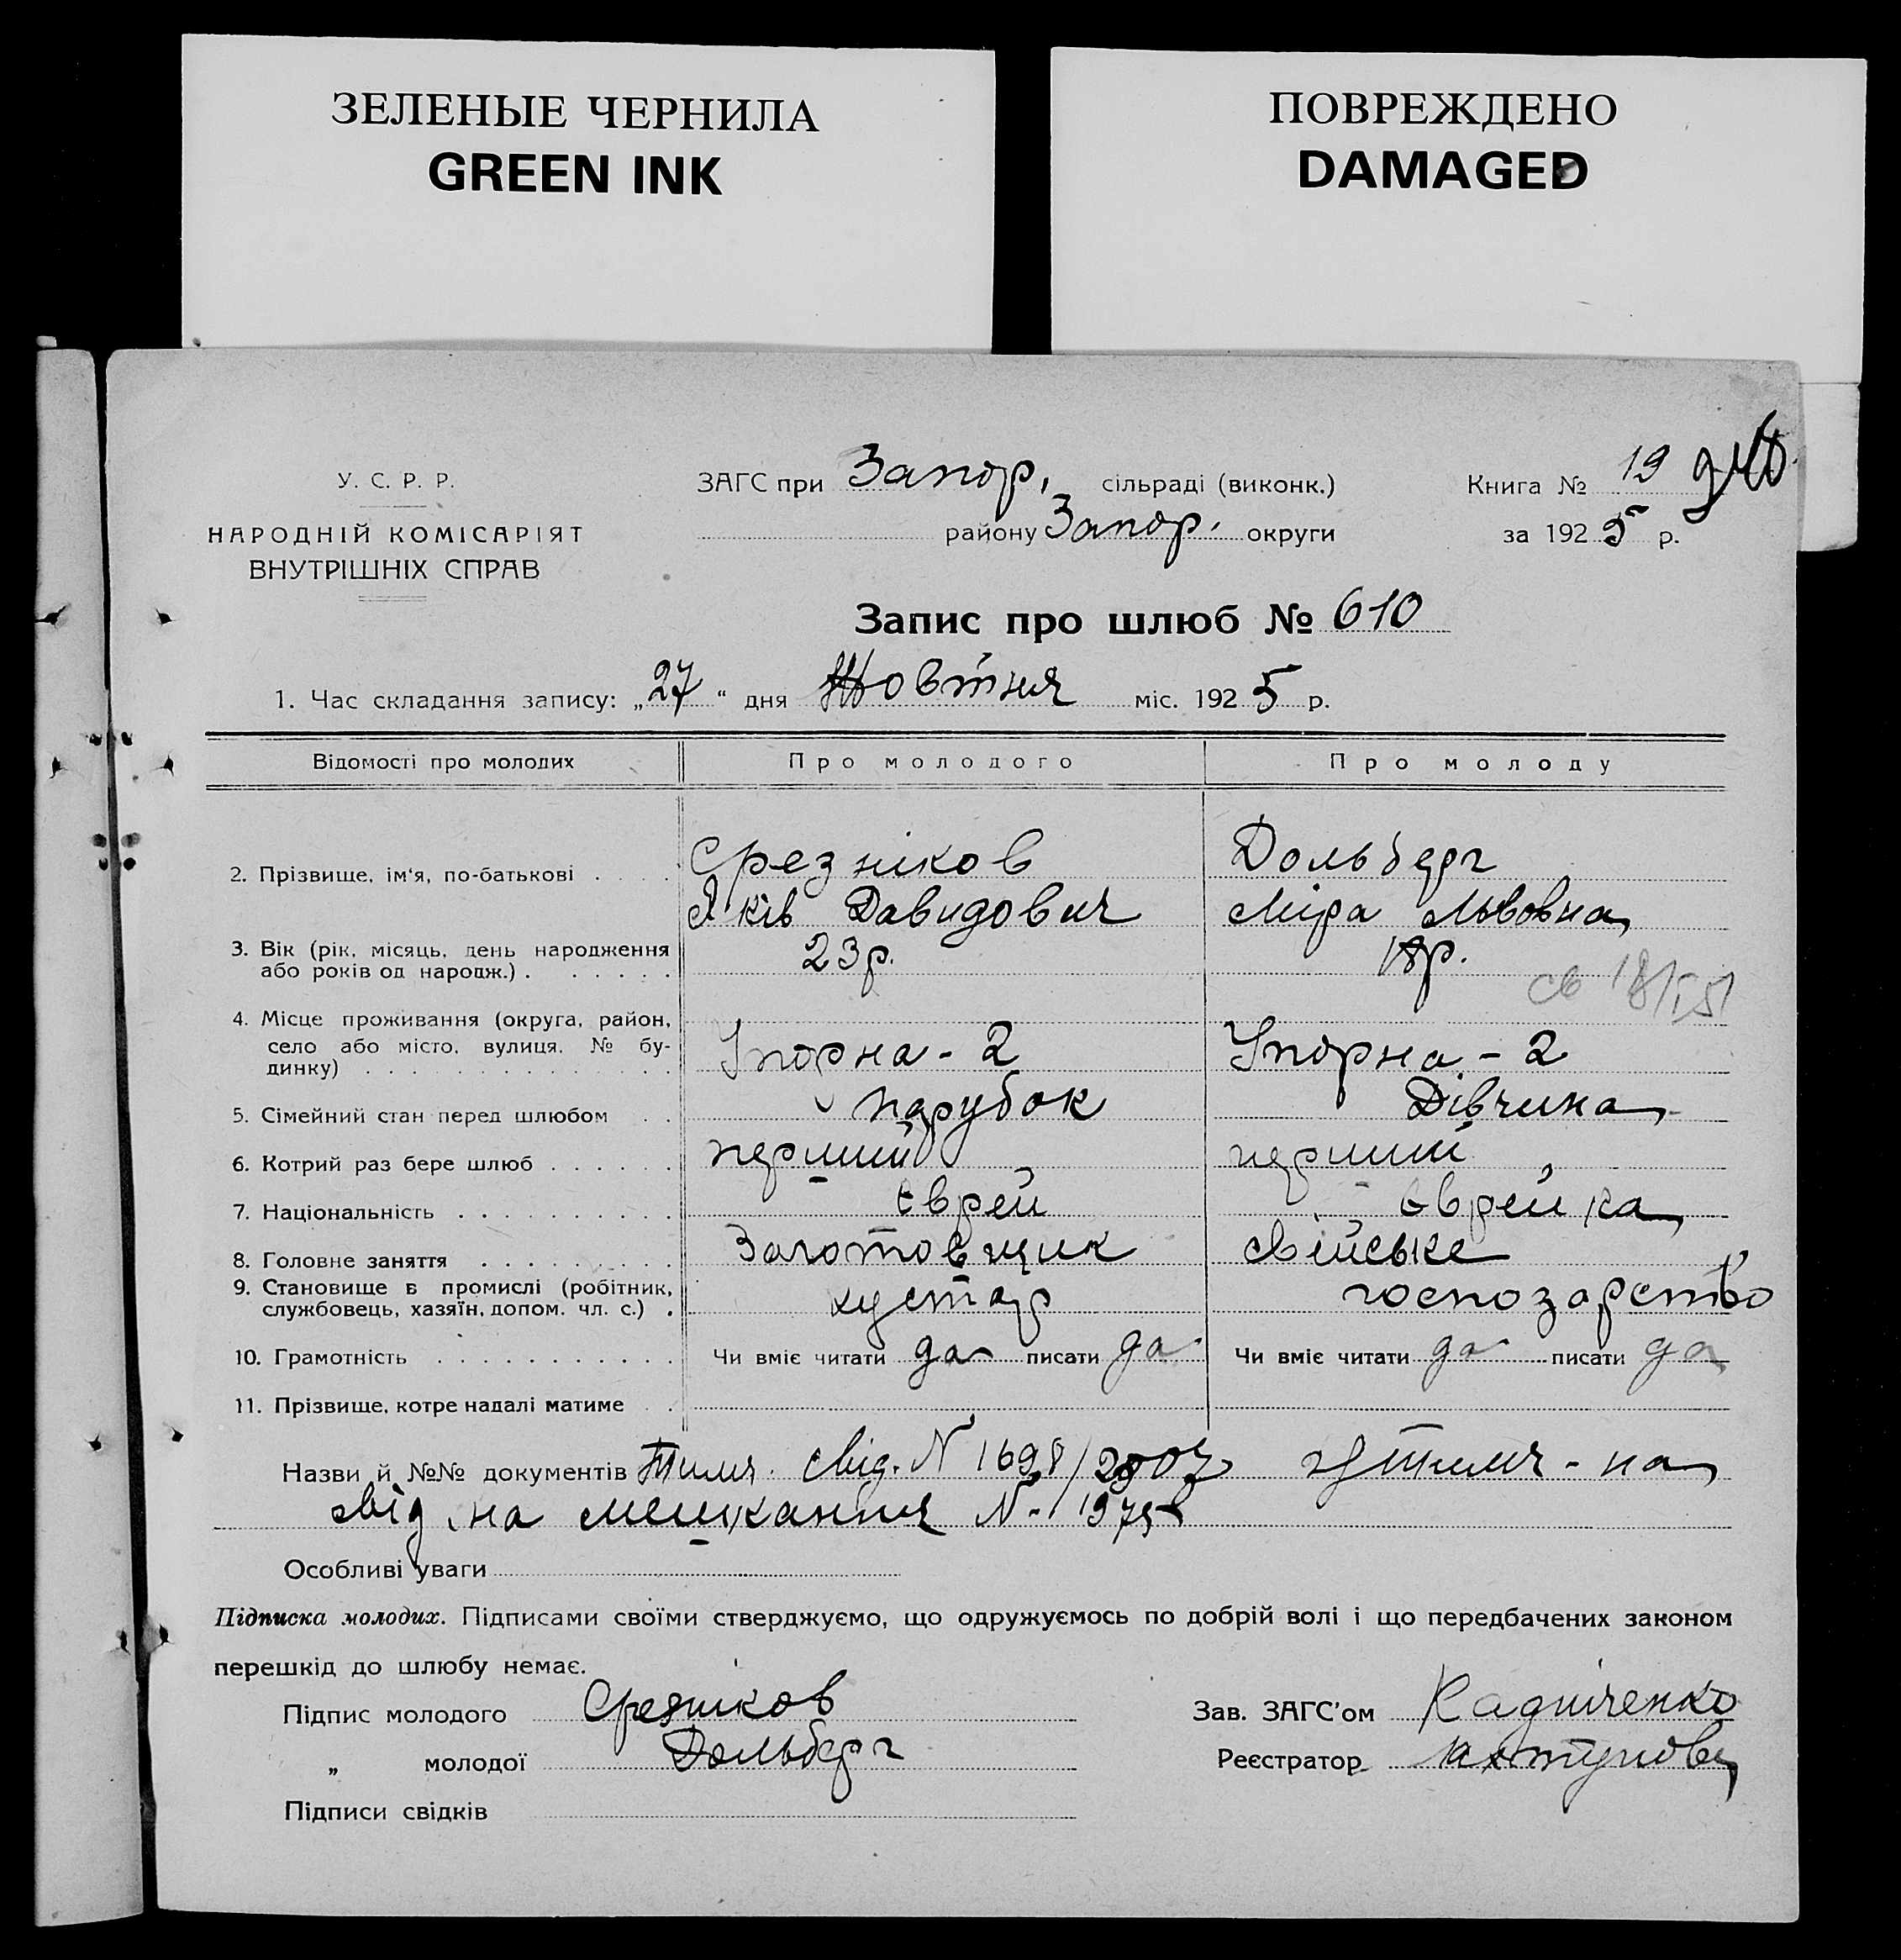 ЗЕЛЕНЫЕ ЧЕРНИЛА
GREEN INK
ПОВРЕЖДЕНО
DAMAGED
У. С. Р. Р.
НАРОДНІЙ КОМІСАРІЯТ
ВНУТРІШНІХ СПРАВ
ЗАГС при Запор. сільраді (виконк.)
району Запор. округи
Книга № 19
за 1925 р.
Запис про шлюб № 610
1. Час складання запису: „27“ дня Жовтня міс. 1925 р.
Відомості про молодих Про молодого Про молоду
2. Прізвище, ім'я, по-батькові . . . . Срезніков Дольберг
Яків Давидович Міра Львовна
3. Вік (рік, місяць, день народження 23 р. 18 р.
або років од народж.) . . . . . .
4. Місце проживання (округа, район,
село або місто, вулиця, № бу- Упорна - 2 Упорна - 2
динку) . . . . . . . . . . . . . .
5. Сімейний стан перед шлюбом . . парубок Дівчина
6. Котрий раз бере шлюб . . . . . . перший перший
7. Національність . . . . . . . . . . Єврей Єврейка
8. Головне заняття . . . . . . . . . Заготовщик свійське
9. Становище в промислі (робітник, кустар господарство
службовець, хазяїн, допом. чл. с.) .
10. Грамотність . . . . . . . . . . . Чи вміє читати да писати да Чи вміє читати да писати да
11. Прізвище, котре надалі матиме . .
Назви й №№ документів Тимч. свід. N 1698/
свід. на мешкання N
Особливі уваги
Підписка молодих. Підписами своїми стверджуємо, що одружуємось по добрій волі і що передбачених законом
перешкід до шлюбу немає.
Підпис молодого Срезніков
„ молодої Дольберг
Підписи свідків
Зав. ЗАГС'ом
Реєстратор